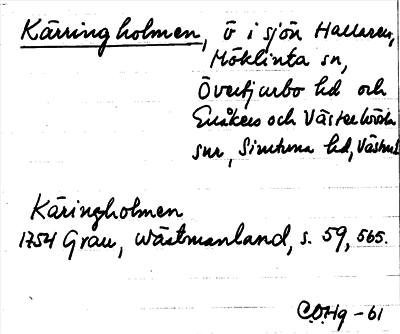 Kärringholmen, ö i sjön Hallaren,
Möklinta sn,
Övertjurbo hd och
Enåkers och Västerlövsta
snr, Simtuna hd, Västml.
Käringholmen
1754 Grau, Wästmanland, s. 59, 565.
C.O.Hg -61